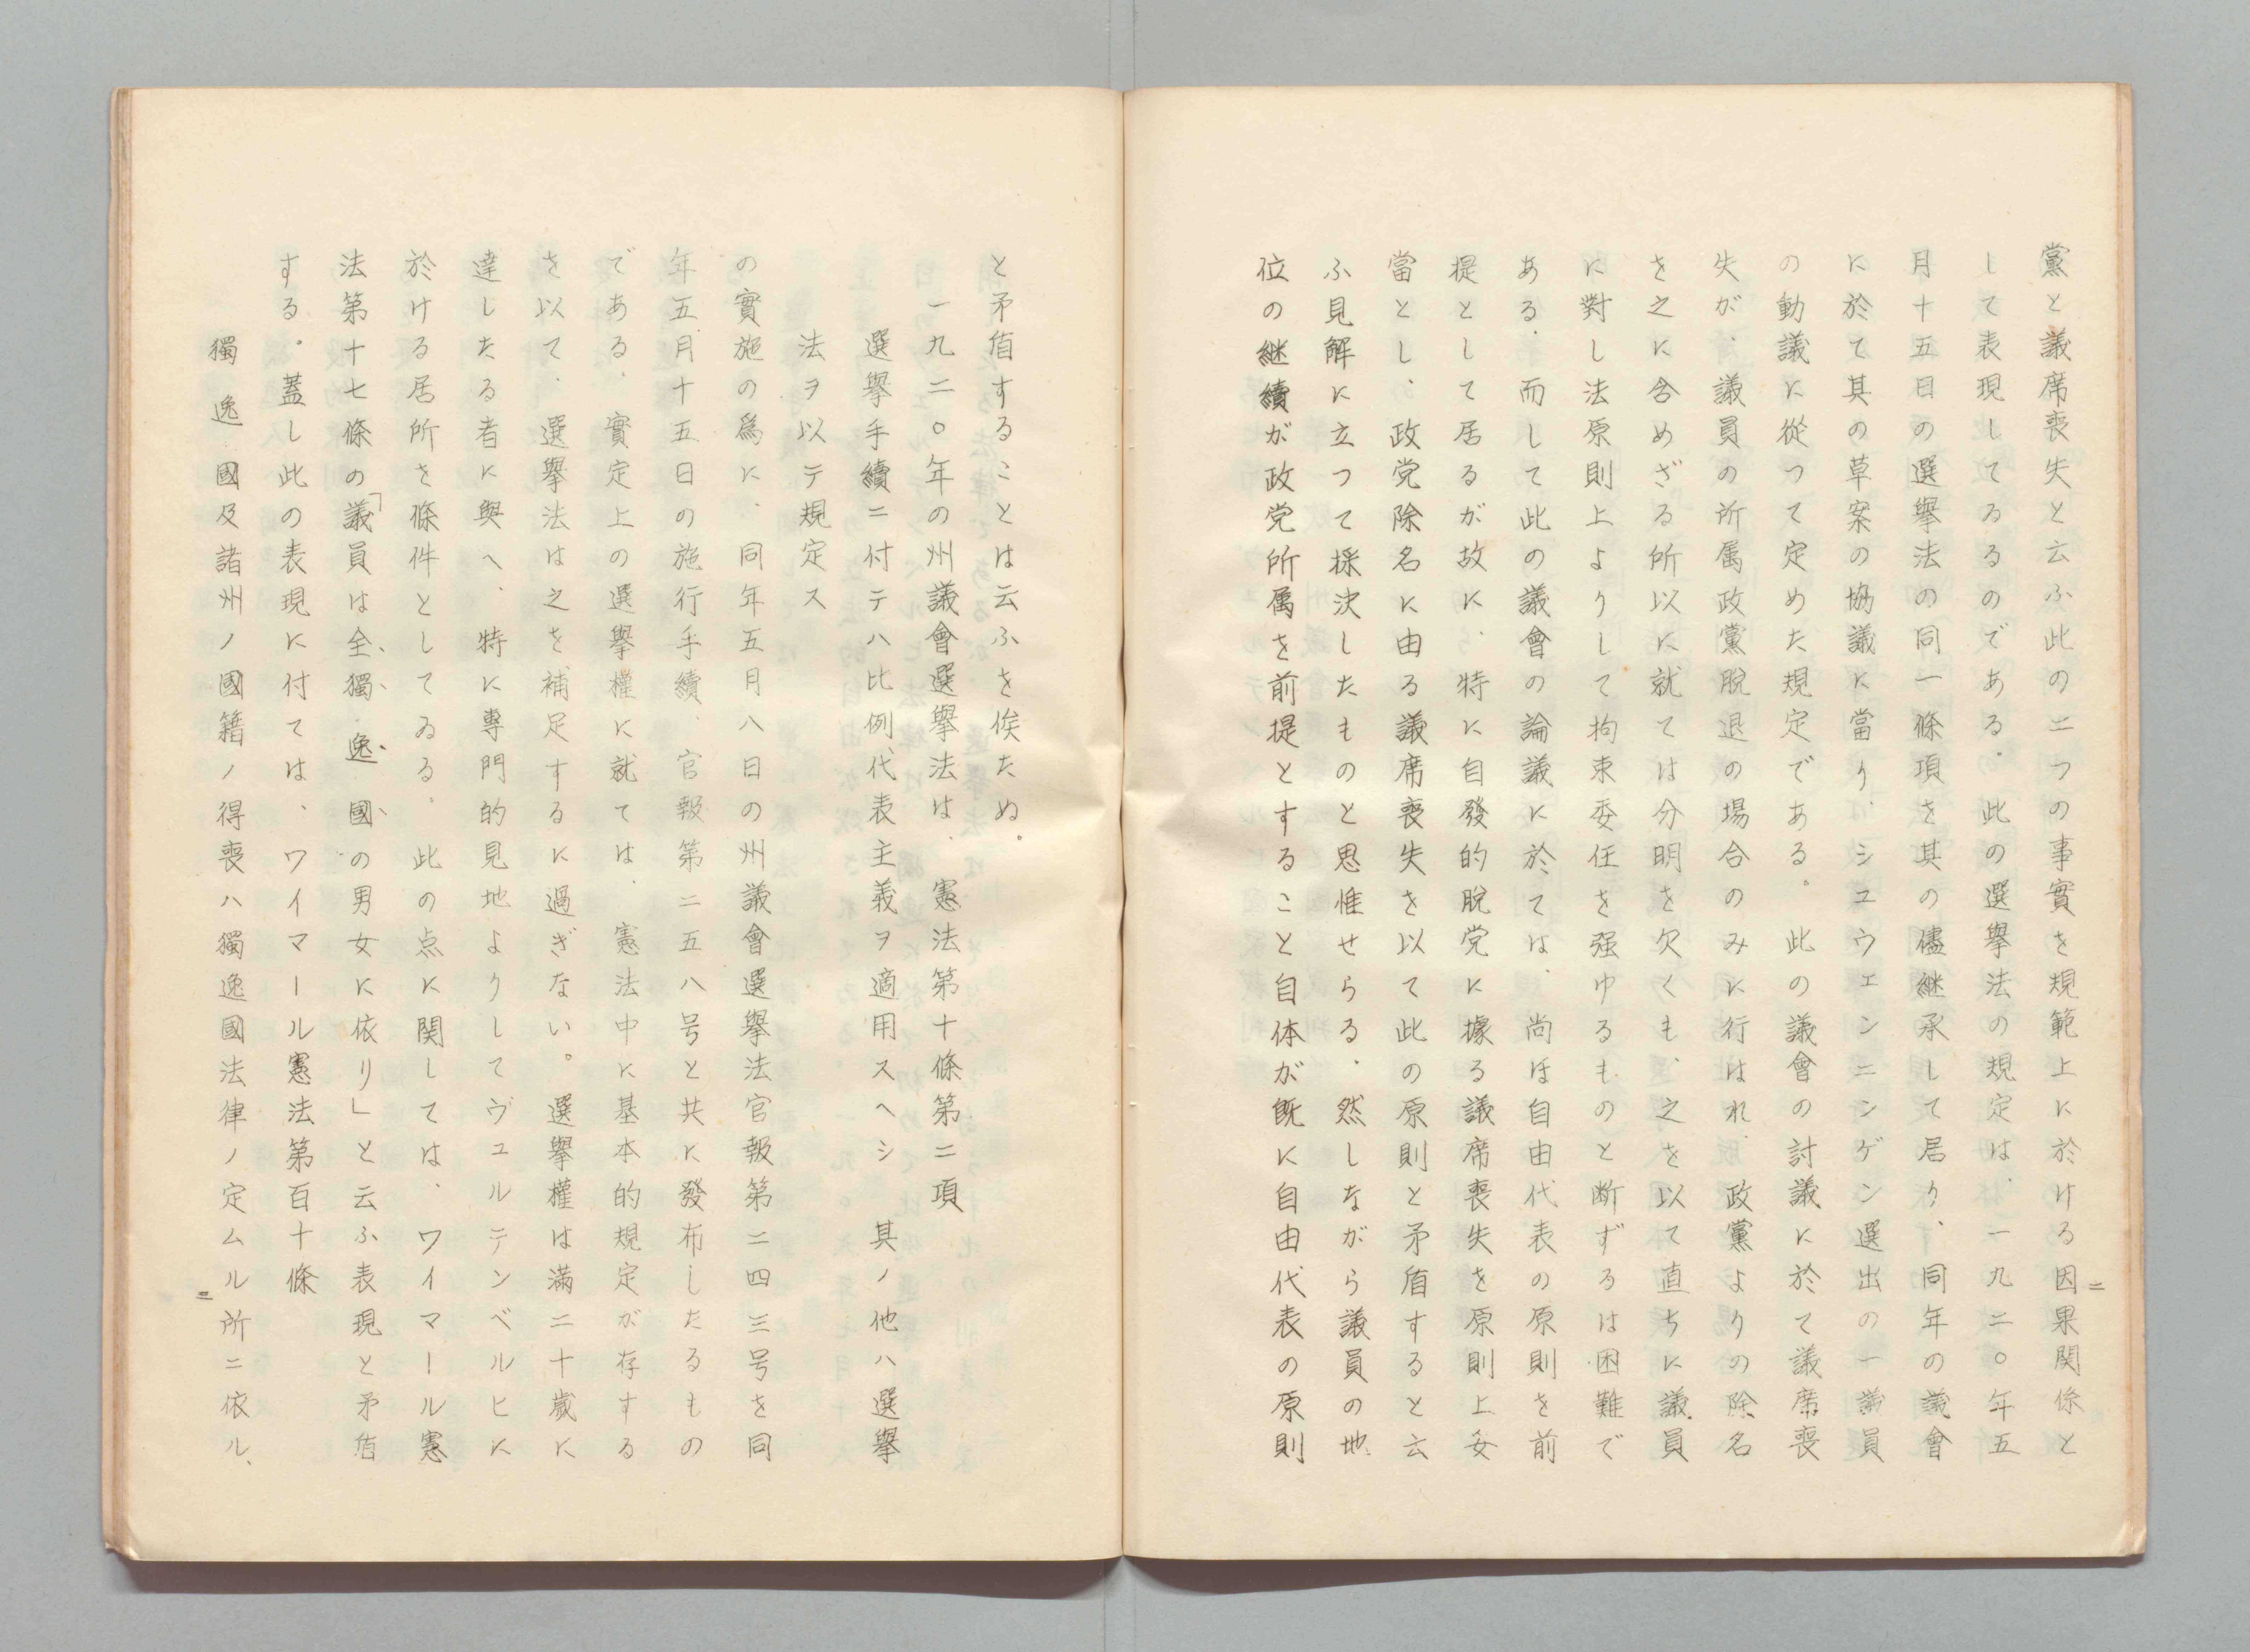 黨と議席喪失と云ふ此の二つの事實を規範上に於ける因果関係と
して表現してゐるのである。此の選擧法の規定は、一九二〇年五
月十五日の選擧法の同一條項を其の儘継承して居り、同年の議會
に於て其の草案の協議に當り、シユウェンニンゲン選出の一議員
の動議に從つて定めた規定である。此の議會の討議に於て議席喪
失が、議員の所属政黨脫退の場合のみに行はれ、政黨よりの除名
を之に含めざる所以に就ては分明を欠くも、之を以て直ちに議員
に對し法原則上よりして拘束委任を强ゆるものと断ずるは困難で
ある、而して此の議會の論議に於ては、尚ほ自由代表の原則を前
提として居るが故に、特に自發的脫党に據る議席喪失を原則上妥
當とし、政党除名に由る議席喪失を以て此の原則と矛盾すると云
ふ見解に立つて採決したものと思惟せらる、然しながら議員の地
位の継續が政党所属を前提とすること自体が既に自由代表の原則
二
と矛盾することは云ふを俟たぬ。
一九二〇年の州議會選擧法は、憲法第十條第二項
選擧手續ニ付テハ比例代表主義ヲ適用スヘシ　其ノ他ハ選擧
法ヲ以テ規定ス
の實施の爲に、同年五月八日の州議會選擧法官報第二四三号を同
年五月十五日の施行手續、官報第二五八号と共に發布したるもの
である、實定上の選擧權に就ては、憲法中に基本的規定が存する
を以て、選擧法は之を補足するに過ぎない。選擧權は満二十歲に
達したる者に與へ、特に専門的見地よりしてヴュルテンベルヒに
於ける居所を條件としてゐる。此の点に関しては、ワイマール憲
法第十七條の「議員は全獨逸國の男女に依リ」と云ふ表現と矛盾
する。蓋し此の表現に付ては、ワイマール憲法第百十條
獨逸國及諸州ノ國籍ノ得喪ハ獨逸國法律ノ定ムル所ニ依ル、
三